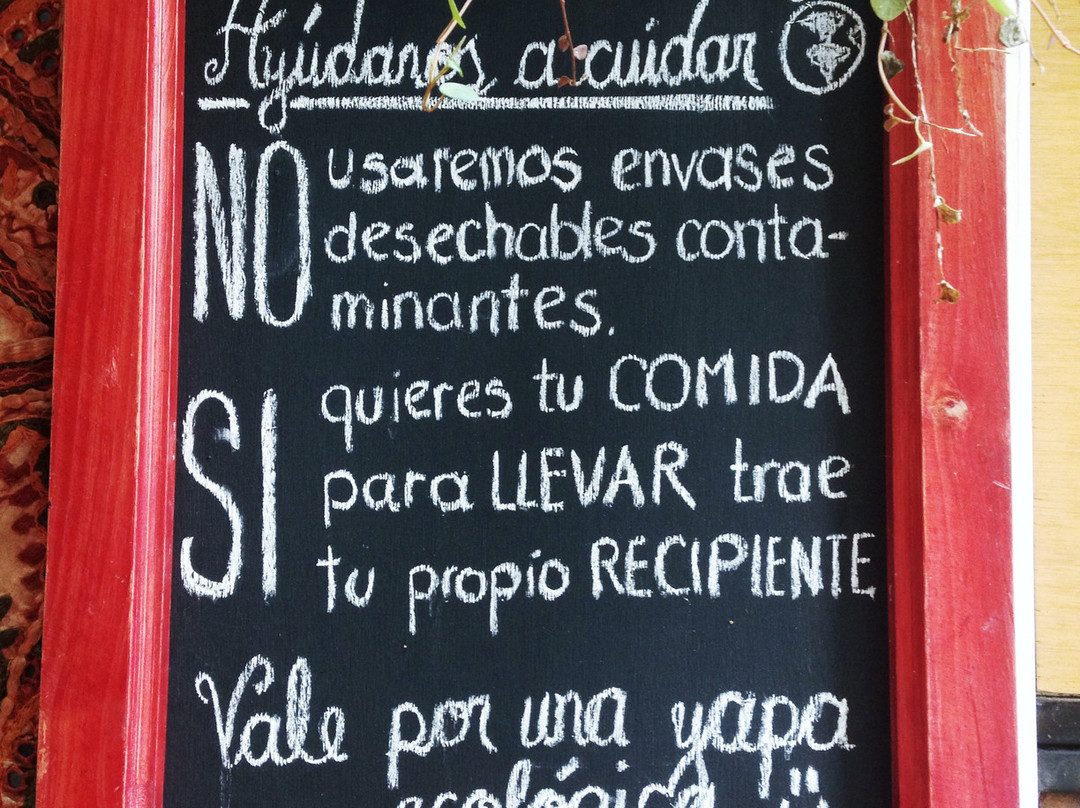 Ayúdanos a cuidar
NO usaremos envases
desechables conta-
minantes.
SI quieres tu COMIDA
para LLEVAR trae
tu propio RECIPIENTE
Vale por una yapa
ecológica